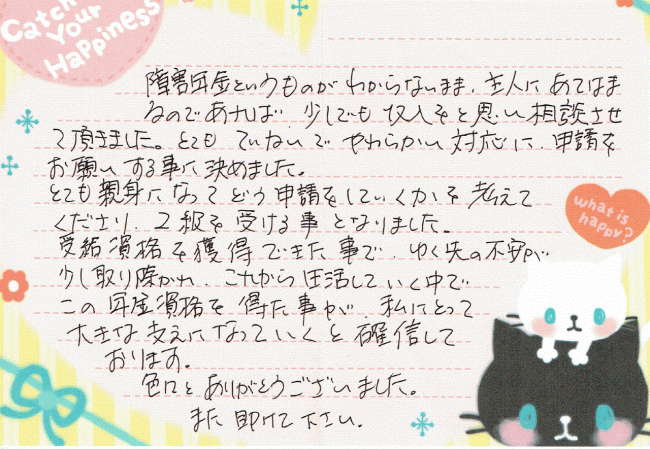 Catch
Your
Happiness
障害年金というものがわからないまま、主人にあてはま
るのであれば、少しでも収入をと思い相談させ
て頂きました。とても ていねいで やわらかい 対応に、申請を
お願いする事に決めました。
とても親身になって どう申請をしていくかを 考えて
くださり 2級を受ける事 となりました。
受給資格を獲得できた事で、ゆく先の不安が
少し取り除かれ、これから生活していく中で
この年金資格を得た事が、私にとって
大きな支えになっていくと確信して
おります。
色々とありがとうございました。
また 助けて下さい。
what is
happy?